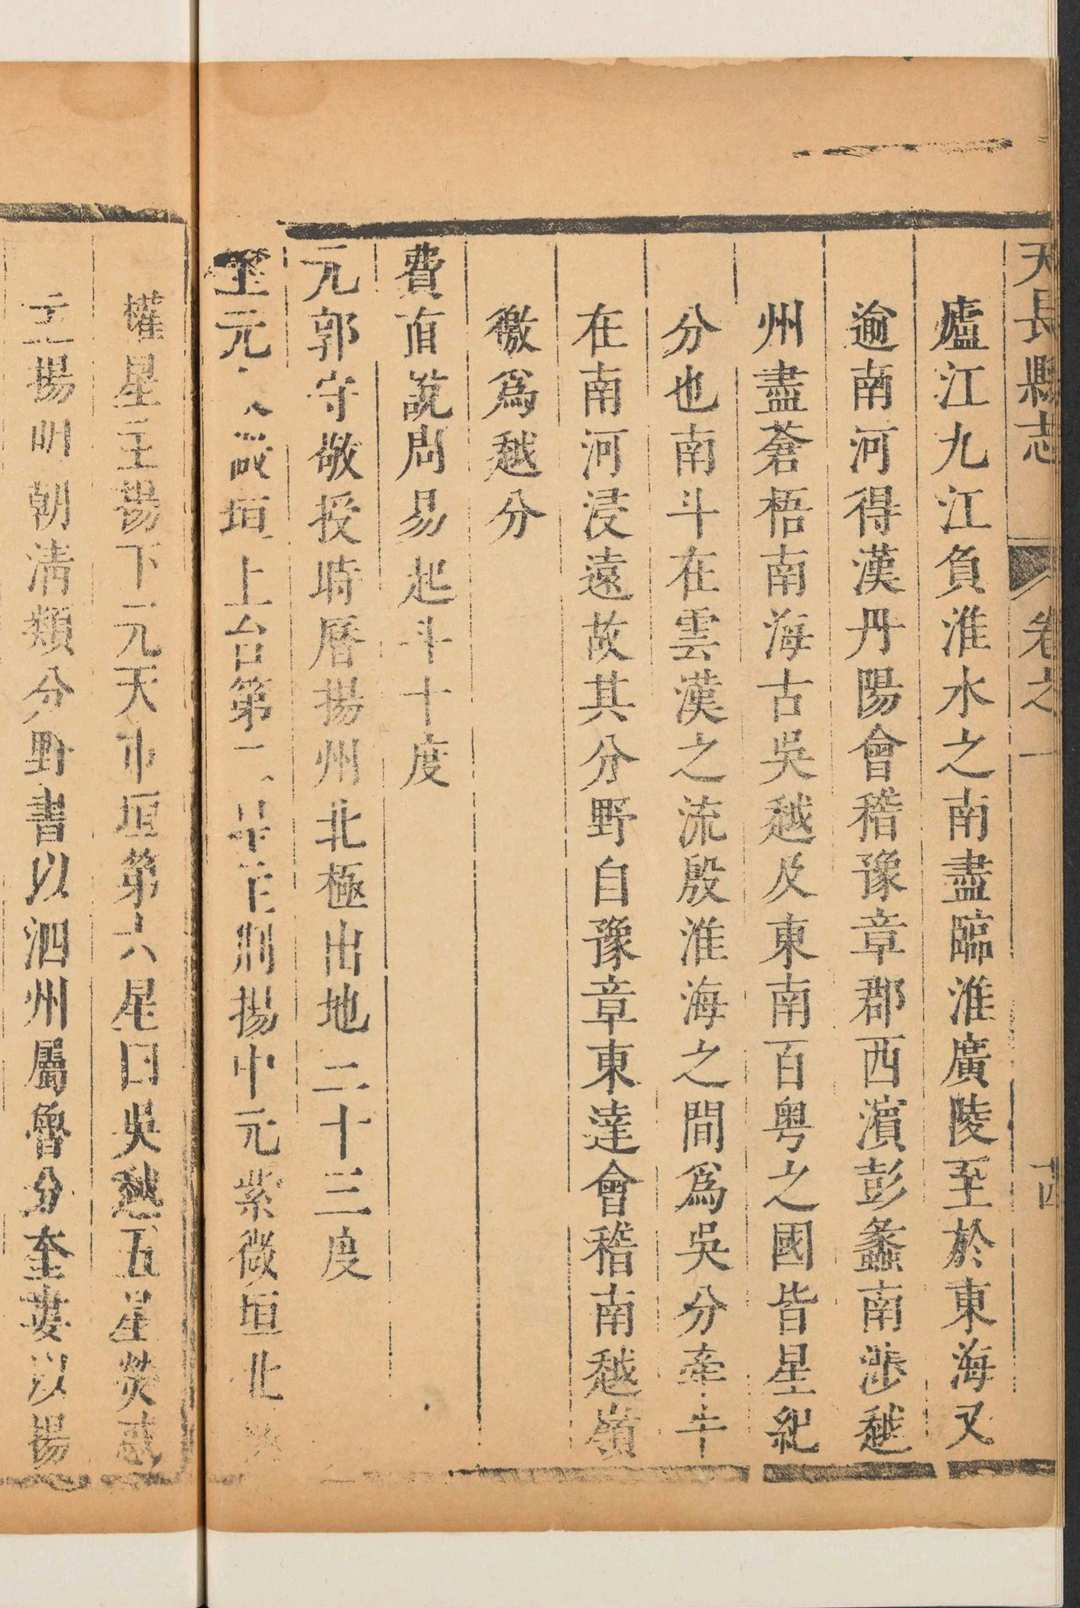 天長縣志 卷之一 十四
廬江九江負淮水之南盡臨淮廣陵至於東海又
逾南河得漢丹陽會稽豫章郡西濱彭蠡南涉越
州盡蒼梧南海古吳越及東南百粤之國皆星紀
分也南斗在雲漢之流殷淮海之間爲吳分牽牛
在南河浸遠故其分野自豫章東達會稽南越嶺
徼爲越分
費直說周易起斗十度
元郭守敬授時曆揚州北極出地二十三度
元 垣上台第二星主荆揚中元紫微垣北
權星主揚下元天市垣第六星曰吳越五星熒惑
主揚明朝清類分野書以泗州屬魯分奎婁以揚